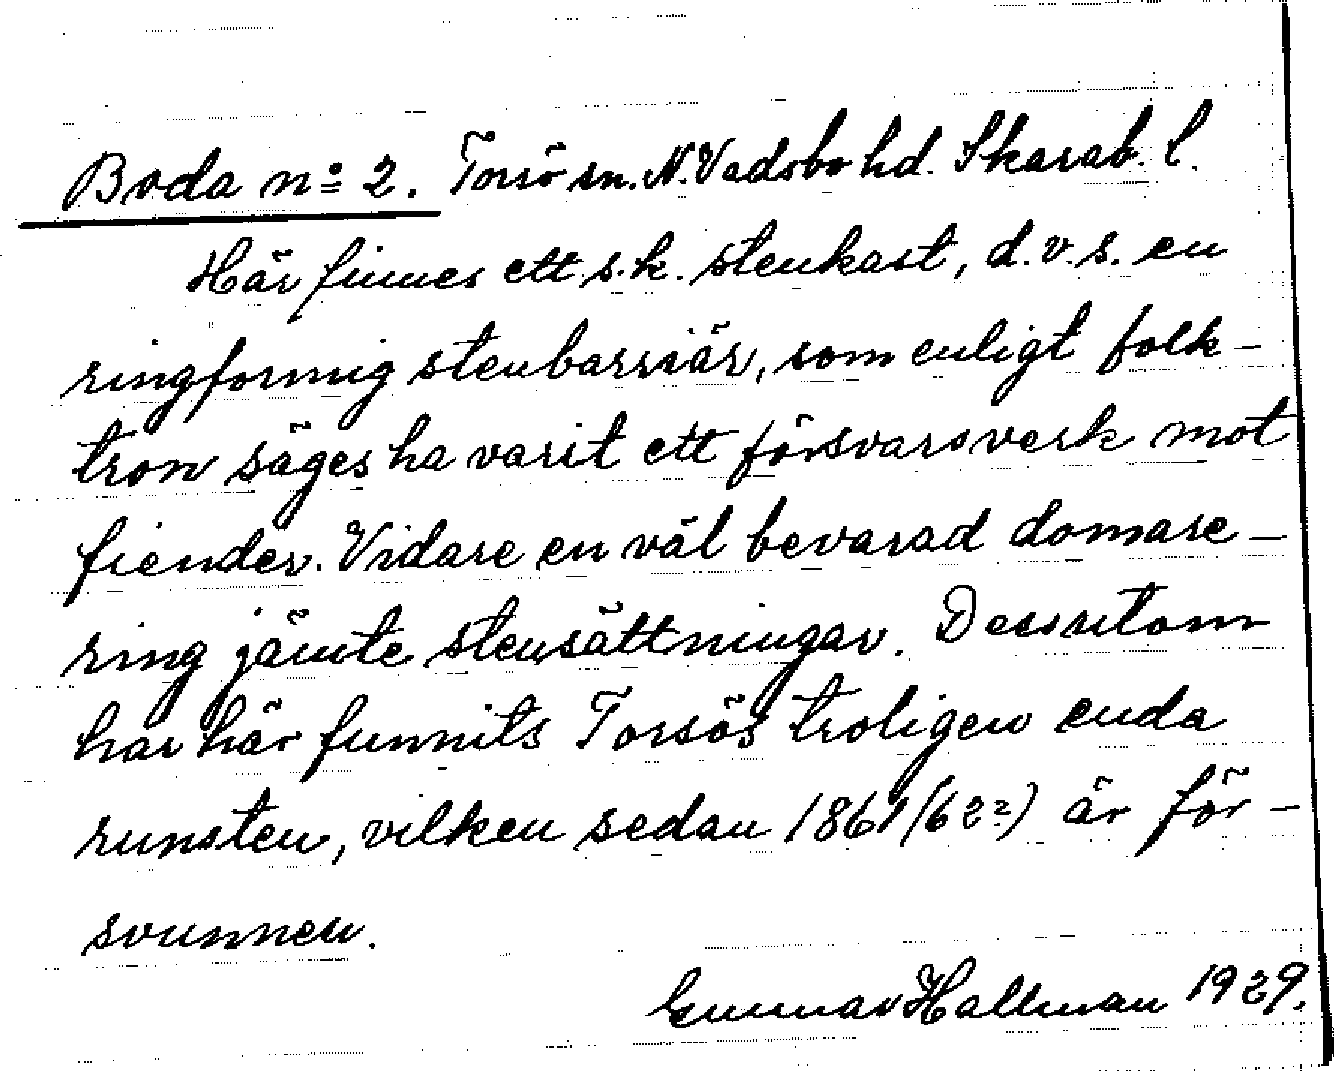 Boda nº 2. Torsö sn. N. Vadsbo hd. Skarab. l.
Här finnes ett s.k. stenkast, d.v.s. en
ringformig stenbarriär, som enligt folk-
tron säges ha varit ett försvarsverk mot
fiender. Vidare en väl bevarad domare-
ring jämte stensättningar. Dessutom
har här funnits Torsös troligen enda
runsten, vilken sedan 1861 (62?) är för-
svunnen.
Gunnar Hallman 1929.